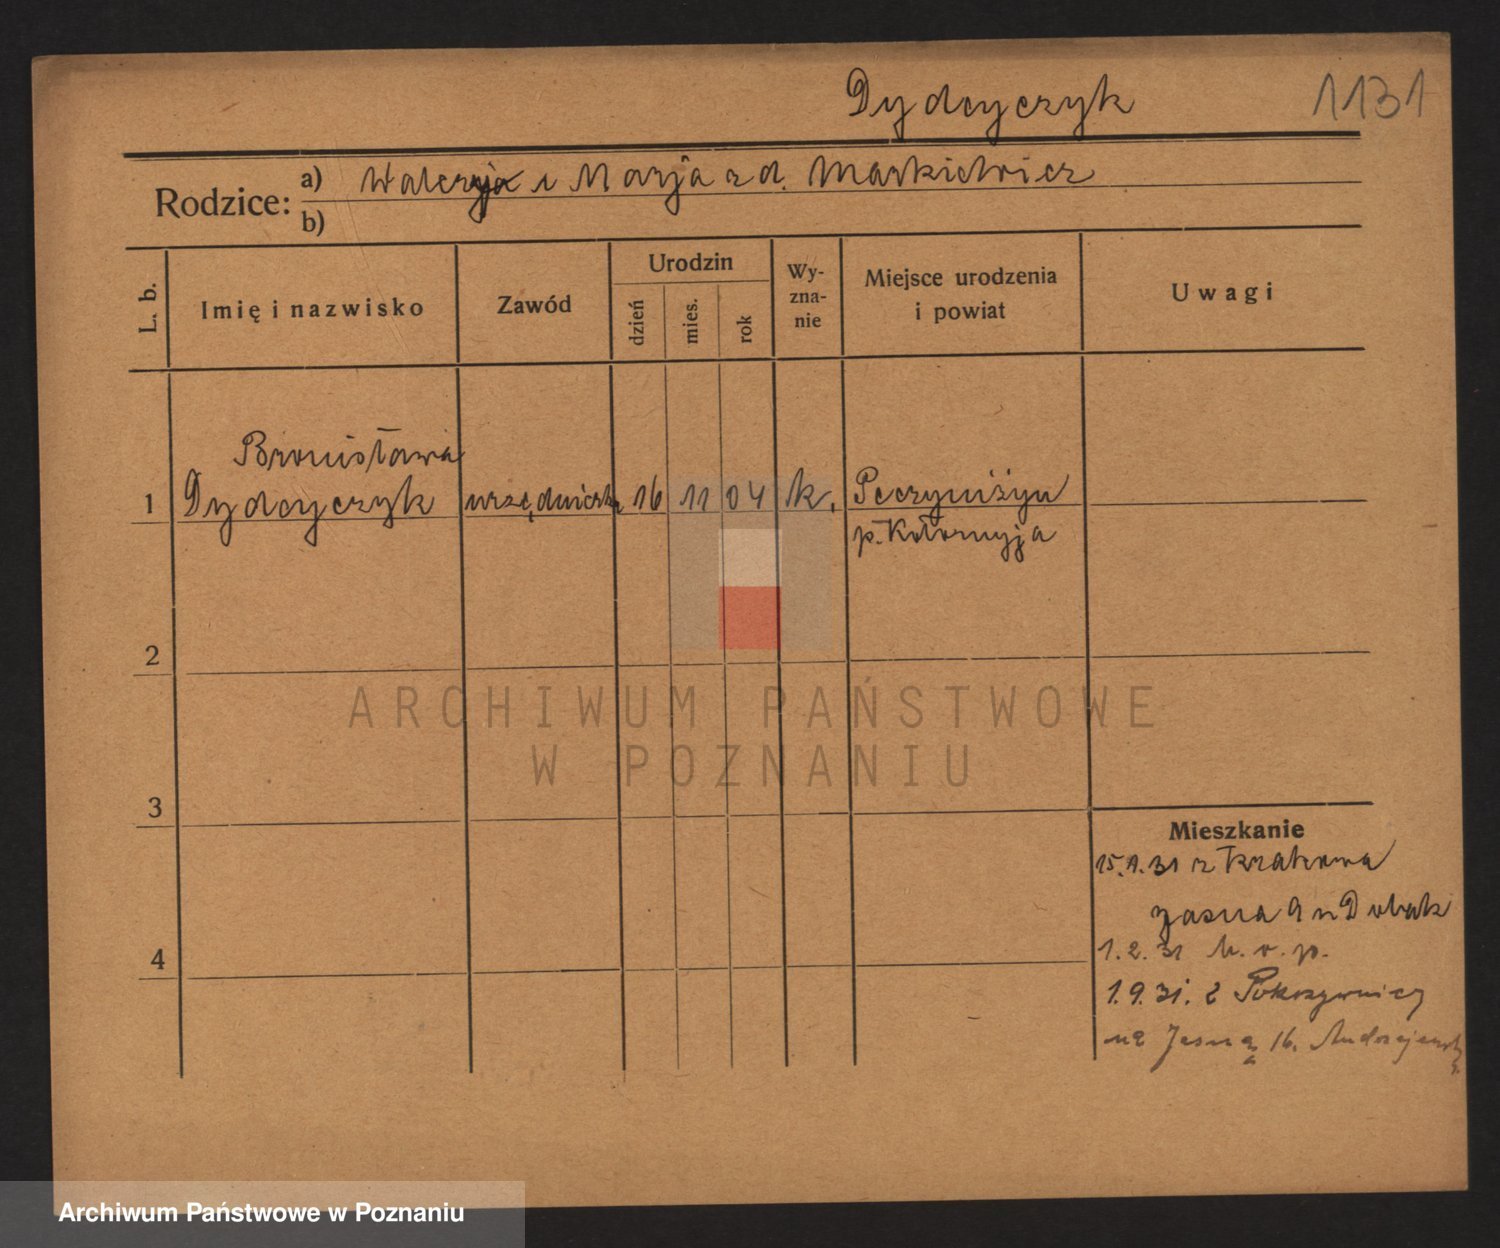 Dydcyczyk 1131
Rodzice: a) Walerja i Marja z d. Markiewicz
b)
L. b. Imię i nazwisko Zawód Urodzin dzień mies. rok Wy-zna-nie Miejsce urodzenia i powiat Uwagi
Bronisława
1 Dydcyczyk urzędniczka 16 11 04 k. Peczyniżyn
p. Kołomyja
2
ARCHIWUM PAŃSTWOWE
W POZNANIU
3
Mieszkanie
15. 1. 31 z Krakowa
Jasna 9
4
1. 2. 31
1. 9. 31. z Pokrzywnicy
na Jasną 16.
Archiwum Państwowe w Poznaniu